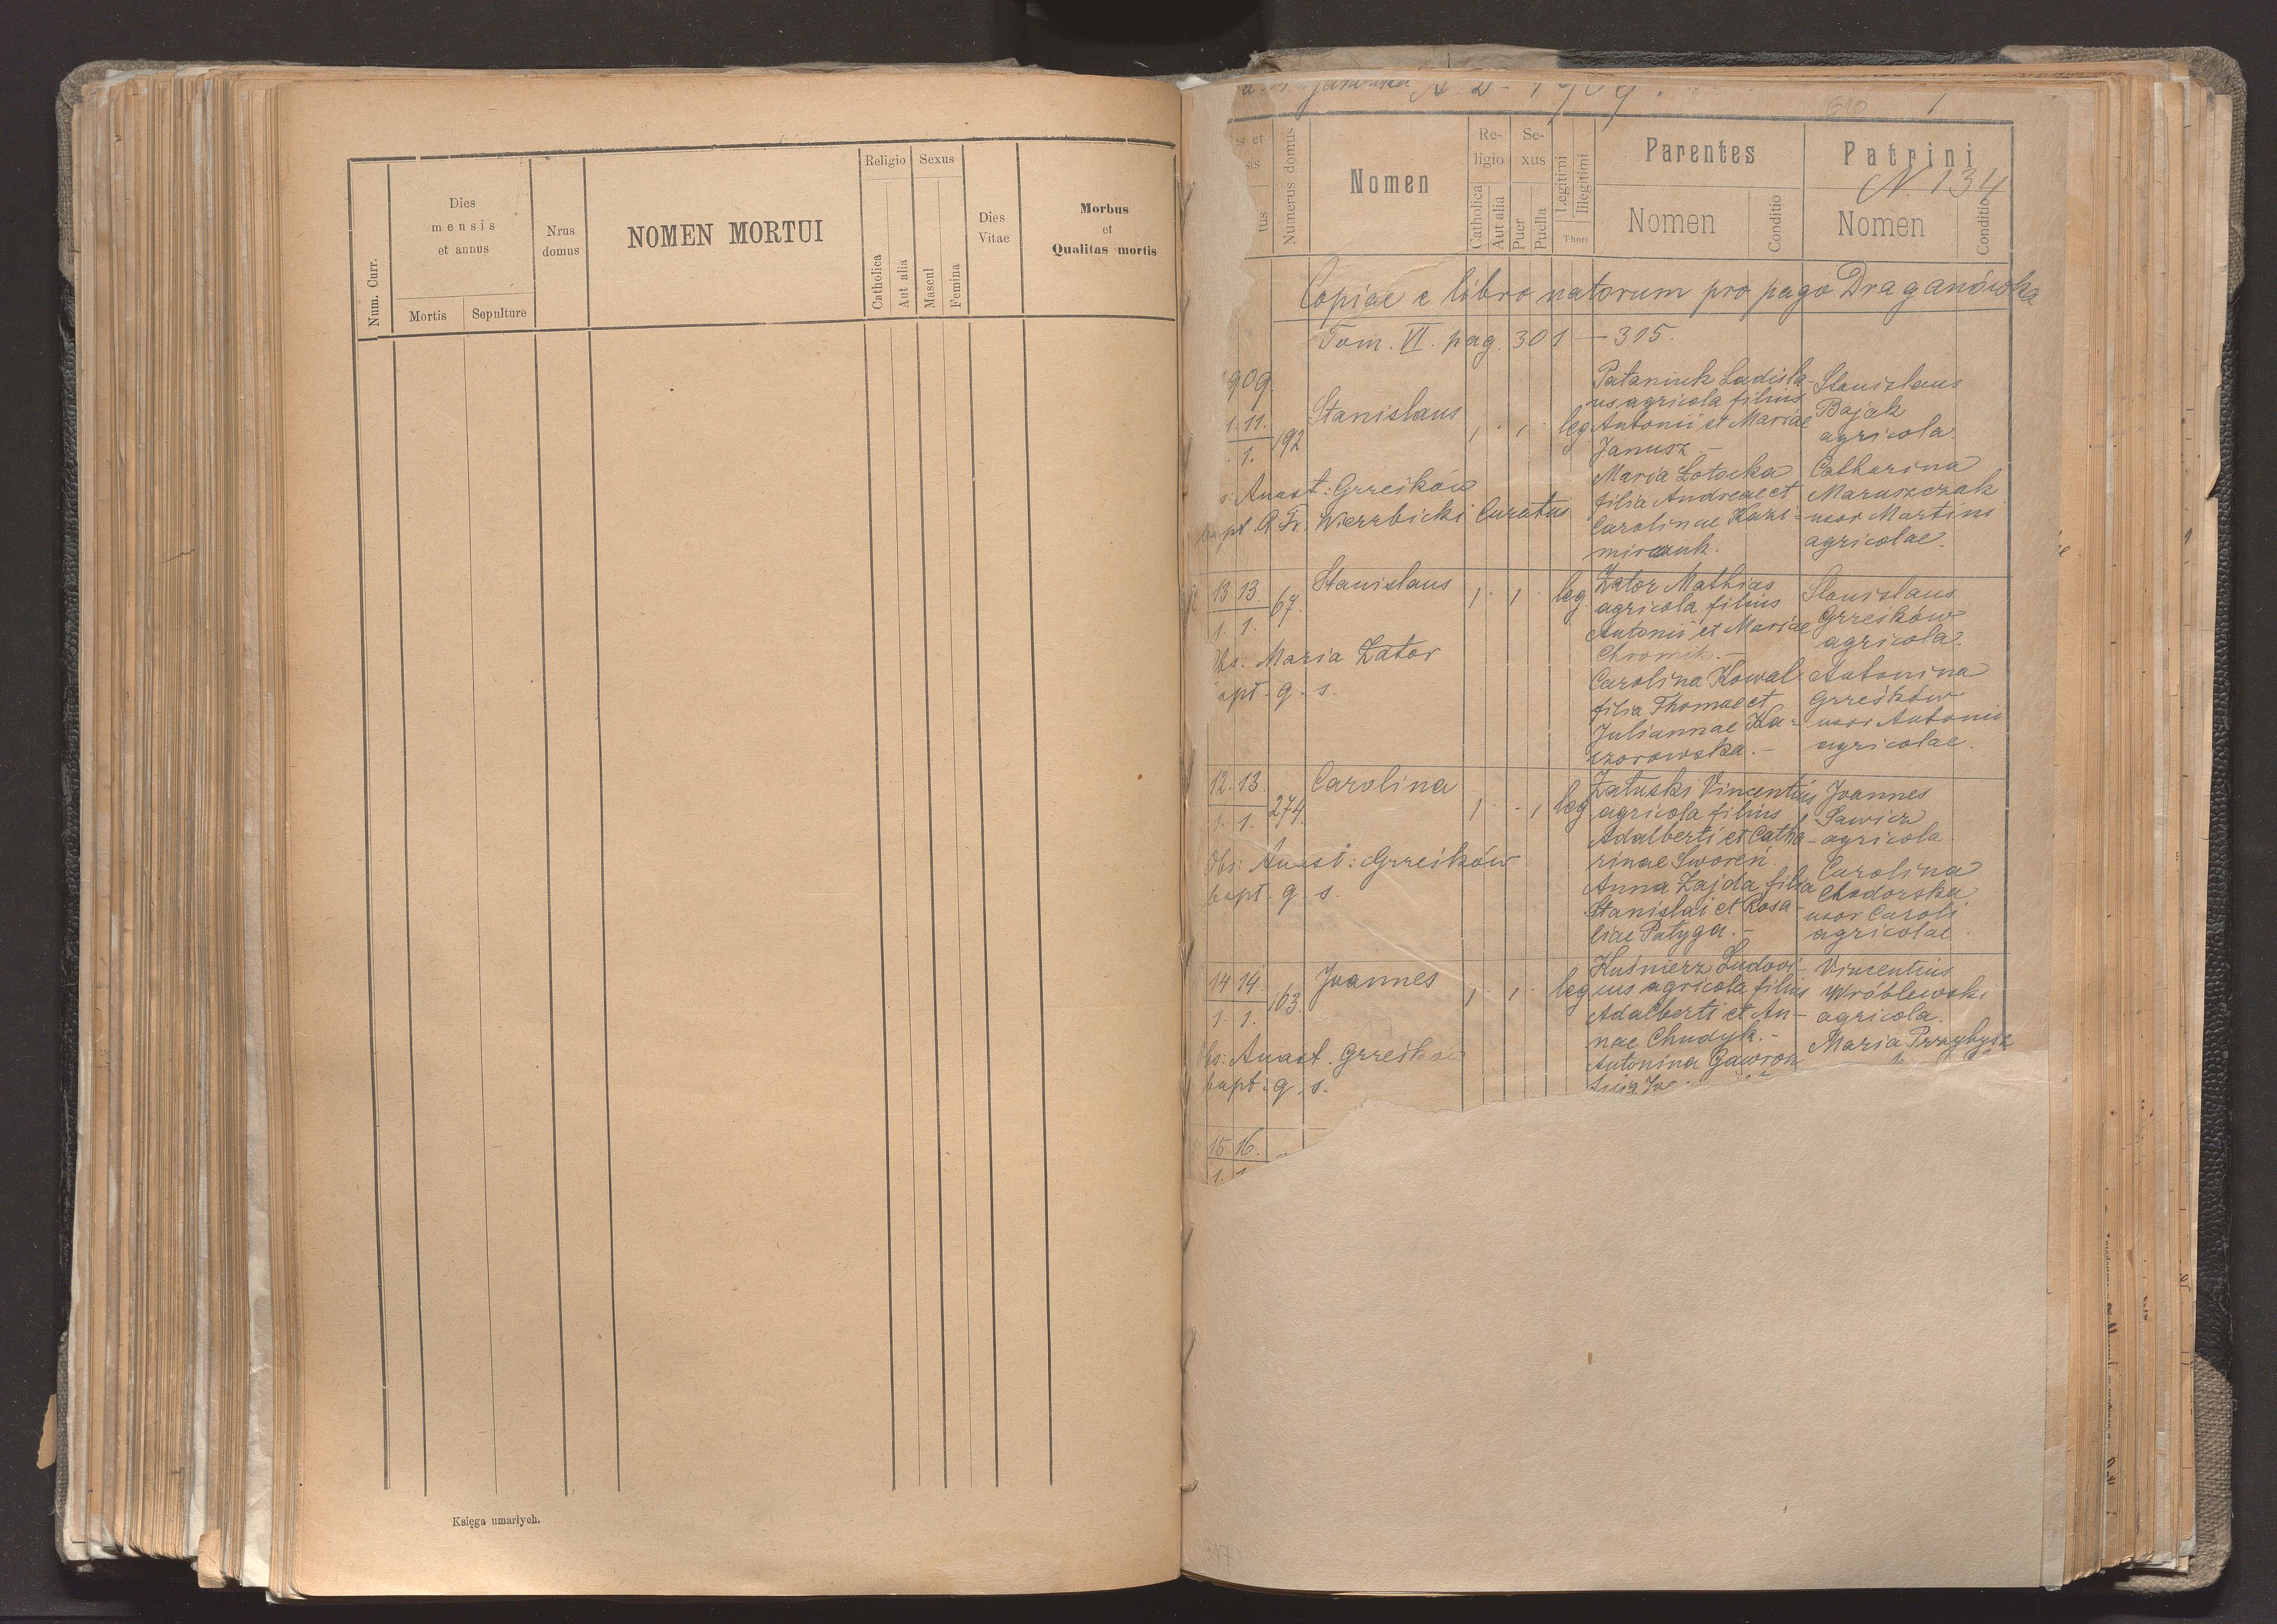 Num. Curr.
Dies
mensis
et annus
Mortis
Sepulture
Nrus
domus
NOMEN MORTUI
Religio
Catholica
Aut alia
Sexus
Mascul
Femina
Dies
Vitae
Morbus
et
Qualitas mortis
Księga umarłych.
A. D. 1909.
1
Numerus domus
Nomen
Re-
ligio
Catholica
Aut alia
Se-
xus
Puer
Puella
Legitimi
Illegitimi
Thori
Parentes
Nomen
Conditio
Patrini
N 134
Nomen
Conditio
Copiae e libro natorum pro pago Draganówka
Tom. VI. pag. 301 – 315.
909
1. 11.
1.
192
Stanislaus
leg
Pataniuk Ladisla-
us agricola filius
Antonii et Mariae
Janusz –
Maria Łotocka
filia Andreae et
Carolinae Kazi-
mirczuk.
Stanislaus
Bajak
agricola.
Catharina
Maruszczak
uxor Martini
agricolae.
Anast: Grześków
bapt. A. Fr. Wierzbicki Curatus
13 13.
1. 1.
67.
Stanislaus
leg.
Zator Mathias
agricola filius
Antonii et Mariae
Chromik. –
Carolina Kowal
filia Thomae et
Juliannae Ka-
czorowska. –
Stanislaus
Grześków
agricola.
Antonina
Grześków
uxor Antonii
agricolae.
Obs: Maria Zator
bapt. q. s.
12. 13.
1. 1.
274.
Carolina
leg
Załuski Vincentius
agricola filius
Adalberti et Catha-
rinae Sworeń.
Anna Zajda filia
Stanislai et Rosa-
liae Patyga. –
Joannes
Sawicz
agricola.
Carolina
Chodorska
uxor Caroli
agricolae.
Obs: Anast: Grześków
bapt. q. s.
14 14.
1. 1.
163.
Joannes
leg
Kuśnierz Ludovi-
cus agricola filius
Adalberti et An-
nae Chudyk. –
Antonina Gawron
filia Jo
Vincentius
Wróblewski
agricola.
Maria Przybysz
Obs: Anast. Grześków
bapt: q. s.
15. 16.
1. 1